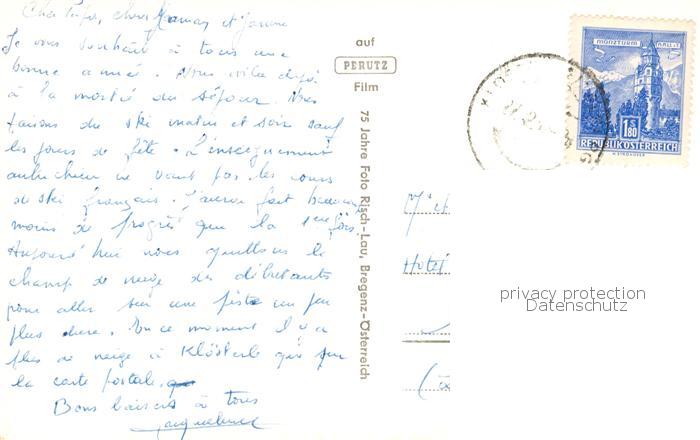 Cher Papa, chère Maman et Janine
Je vous souhaite à tous une
bonne année. Nous voilà déjà
à la moitié du séjour. Nous
faisons du ski matin et soir sauf
les jours de fête. L'enseignement
autrichien ne vaut pas les cours
de ski français. J'aurai fait beaucoup
moins de progrès que la 1ère fois.
Aujourd'hui nous quittons le
champ de neige des débutants
pour aller sur une piste un peu
plus dure. En ce moment il y a
plus de neige à Klösterle que sur
la carte postale.
Bons baisers à tous
Jacqueline
auf
PERUTZ
Film
75 Jahre Foto Risch-Lau, Bregenz-Österreich
MÜNZTURM HALL I.T.
S 1.80
REPUBLIK ÖSTERREICH
Hotel
privacy protection
Datenschutz